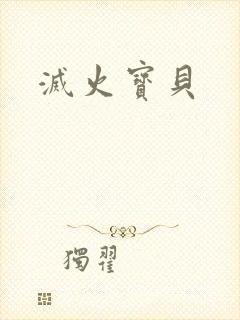 滅火寶貝
獨翟